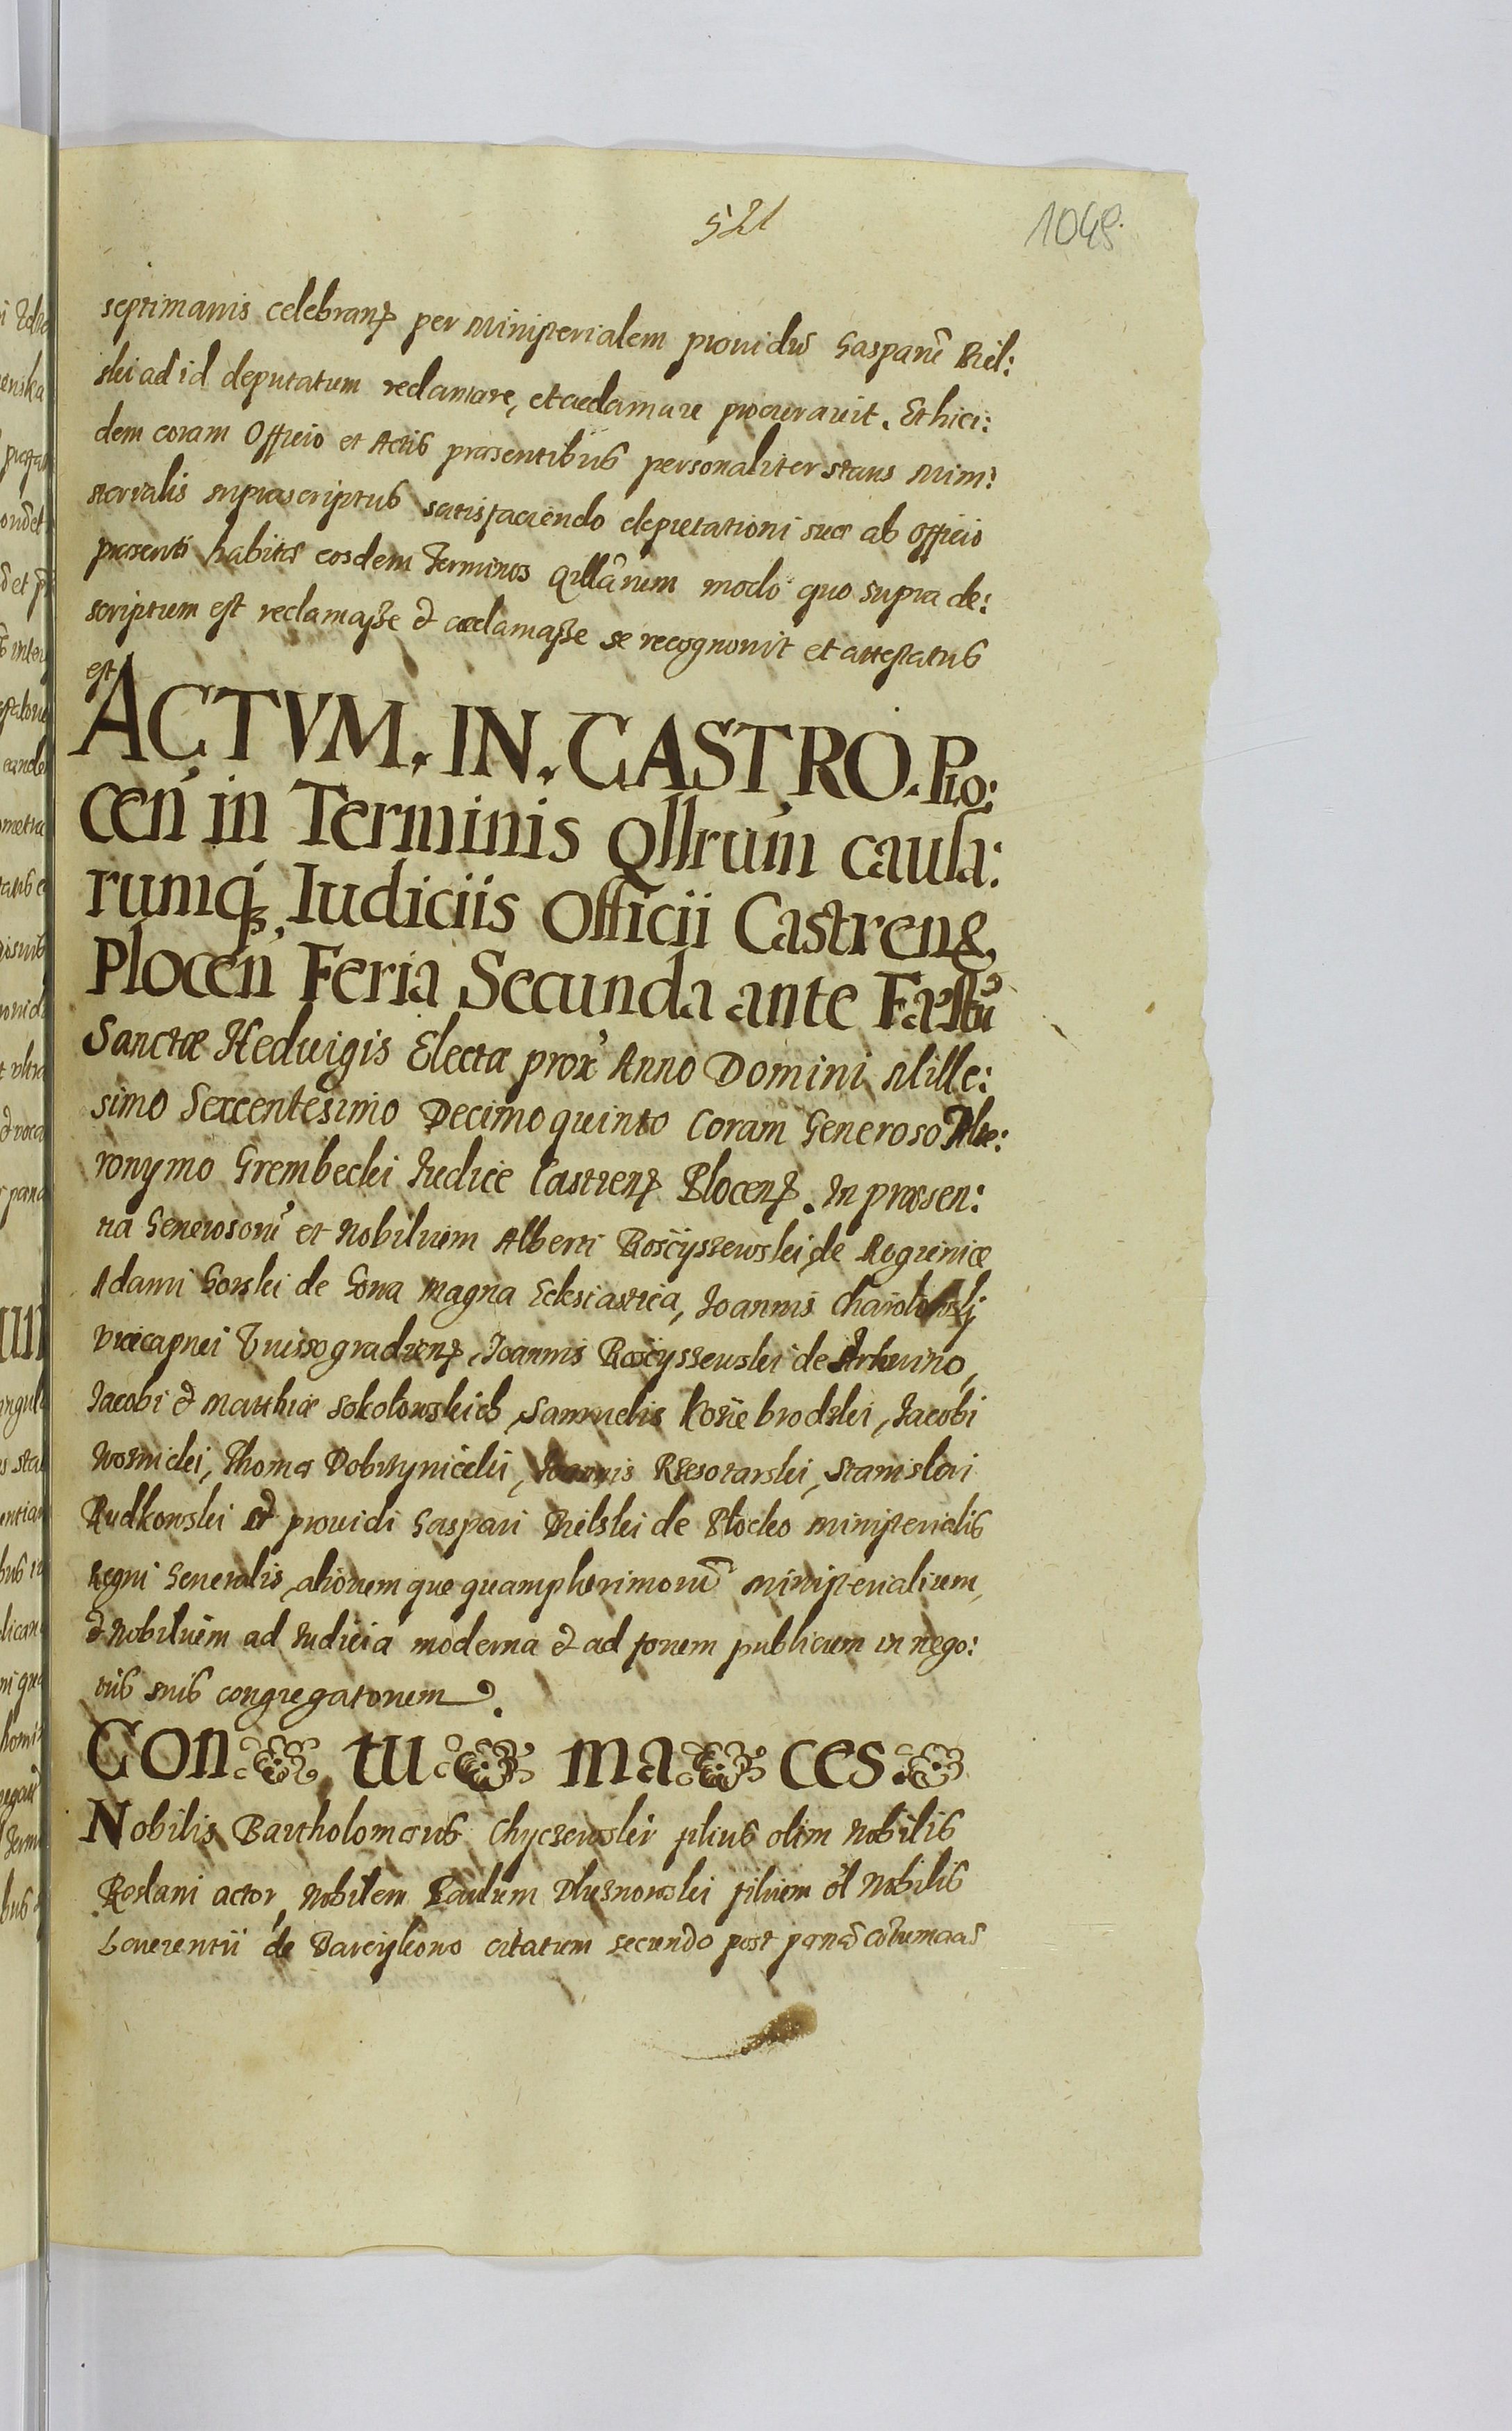 521
1049.
septimanis celebran per Ministerialem prouidũ Gasparē Biel:
ski ad id deputatum reclamare, et acclamare procurauit. Et hici:
dem coram Officio et Actis præsentibus personaliter stans Mini:
sterialis suprascriptus satisfaciendo deputationi suæ ab Officio
præsenti habitæ eosdem Terminos Qllãrum modo quo supra de:
scriptum est reclamasse & acclamasse se recognouit et attestatus
est
ACTVM. IN. CASTRO. Plo:
cen in Terminis Qllrum causa:
rumq́ Iudiciis Officii Castren
Plocen Feria Secunda ante Fastũ
Sanctæ Hedwigis Electæ prox Anno Domini Mille:
simo Sexcentesimo Decimo quinto Coram Generoso Hie:
ronymo Grembecki Iudice Castren Plocen. In præsen:
tia Generosorũ et Nobilium Alberti Rosciszewski de
Adami Gorski de Gora Magna Ecclesiastica, Joannis
Vicecapnei Wissogradien, Joannis Rosciszewski de
Jacobi & Matthiæ Sokolowskich, Samuelis Kosiebrodzki, Jacobi
Woznicki, Thomæ Dobrzynicki, Joannis Rzeszotarski, Stanislai
Rudkowski & prouidi Gaspari Bielski de Plocko Ministerialis
Regni Generalis, aliorumque quamplurimorũ Ministerialium,
& Nobilium ad Iudicia moderna & ad forum publicum in nego:
tiis suis congregatorum.
Con tu ma ces
Nobilis Bartholomæus Chyczewski filius olim Nobilis
Roslani actor, Nobilem Paulum Dluznowski filium ol Nobilis
Laurentii de citatum secundo post pænã